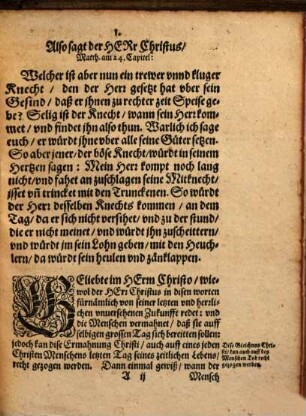 1.
Also sagt der HERr Christus/
Matth. am 24. Capitel:
Welcher ist aber nun ein trewer vnnd kluger
Knecht / den der Herr gesetzt hat vber sein
Gesind / daß er jhnen zu rechter zeit Speise ge-
be? Selig ist der Knecht / wann sein Herr kom-
met / vnd findet jhn also thun. Warlich ich sage
euch / er würdt jhne vber alle seine Güter setzen-
So aber jener / der böse Knecht / würdt in seinem
Hertzen sagen : Mein Herr kompt noch lang
nicht / vnd fahet an zuschlagen seine Mitknecht /
jsset vñ trincket mit den Trunckenen. So würdt
der Herr desselben Knechts kommen / an dem
Tag / da er sich nicht versihet / vnd zu der stund /
die er nicht meinet / vnd würdt jhn zuscheittern /
vnd würdt jm sein Lohn geben / mit den Heuch-
lern / da würdt sein heulen vnd zänklappen.
GEliebte im HErrn Christo / wie-
wol der HErr Christus in disen worten
fürnämlich von seiner letzten vnd herrli-
chen vnuersehenen Zukunfft redet: vnd
die Menschen vermahnet / daß sie auff
selbigen grossen Tag sich bereitten sollen:
jedoch kan dise Ermahnung Christi / auch auff eines jeden
Christen Menschens letzten Tag seines zeitlichen Lebens /
recht gezogen werden. Dann einmal gewiß / wann der
Diß Gleichnus Chri-
sti / kan auch auff deß
Menschen Tod recht
gezogen werden.
A ij
Mensch